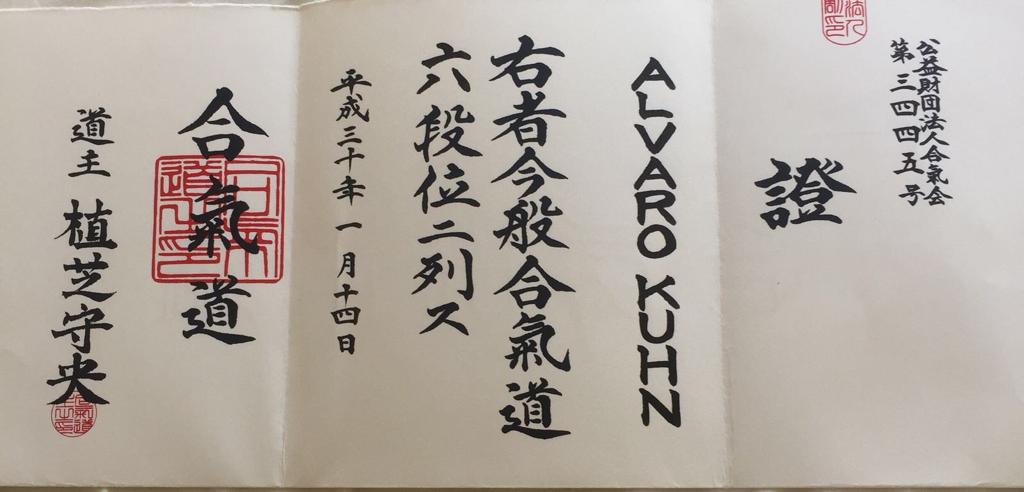 公益財団法人合氣会
第三四四五号
證
ALVARO KUHN
右者今般合氣道
六段位ニ列ス
平成三十年一月十四日
合氣道
道主 植芝守央